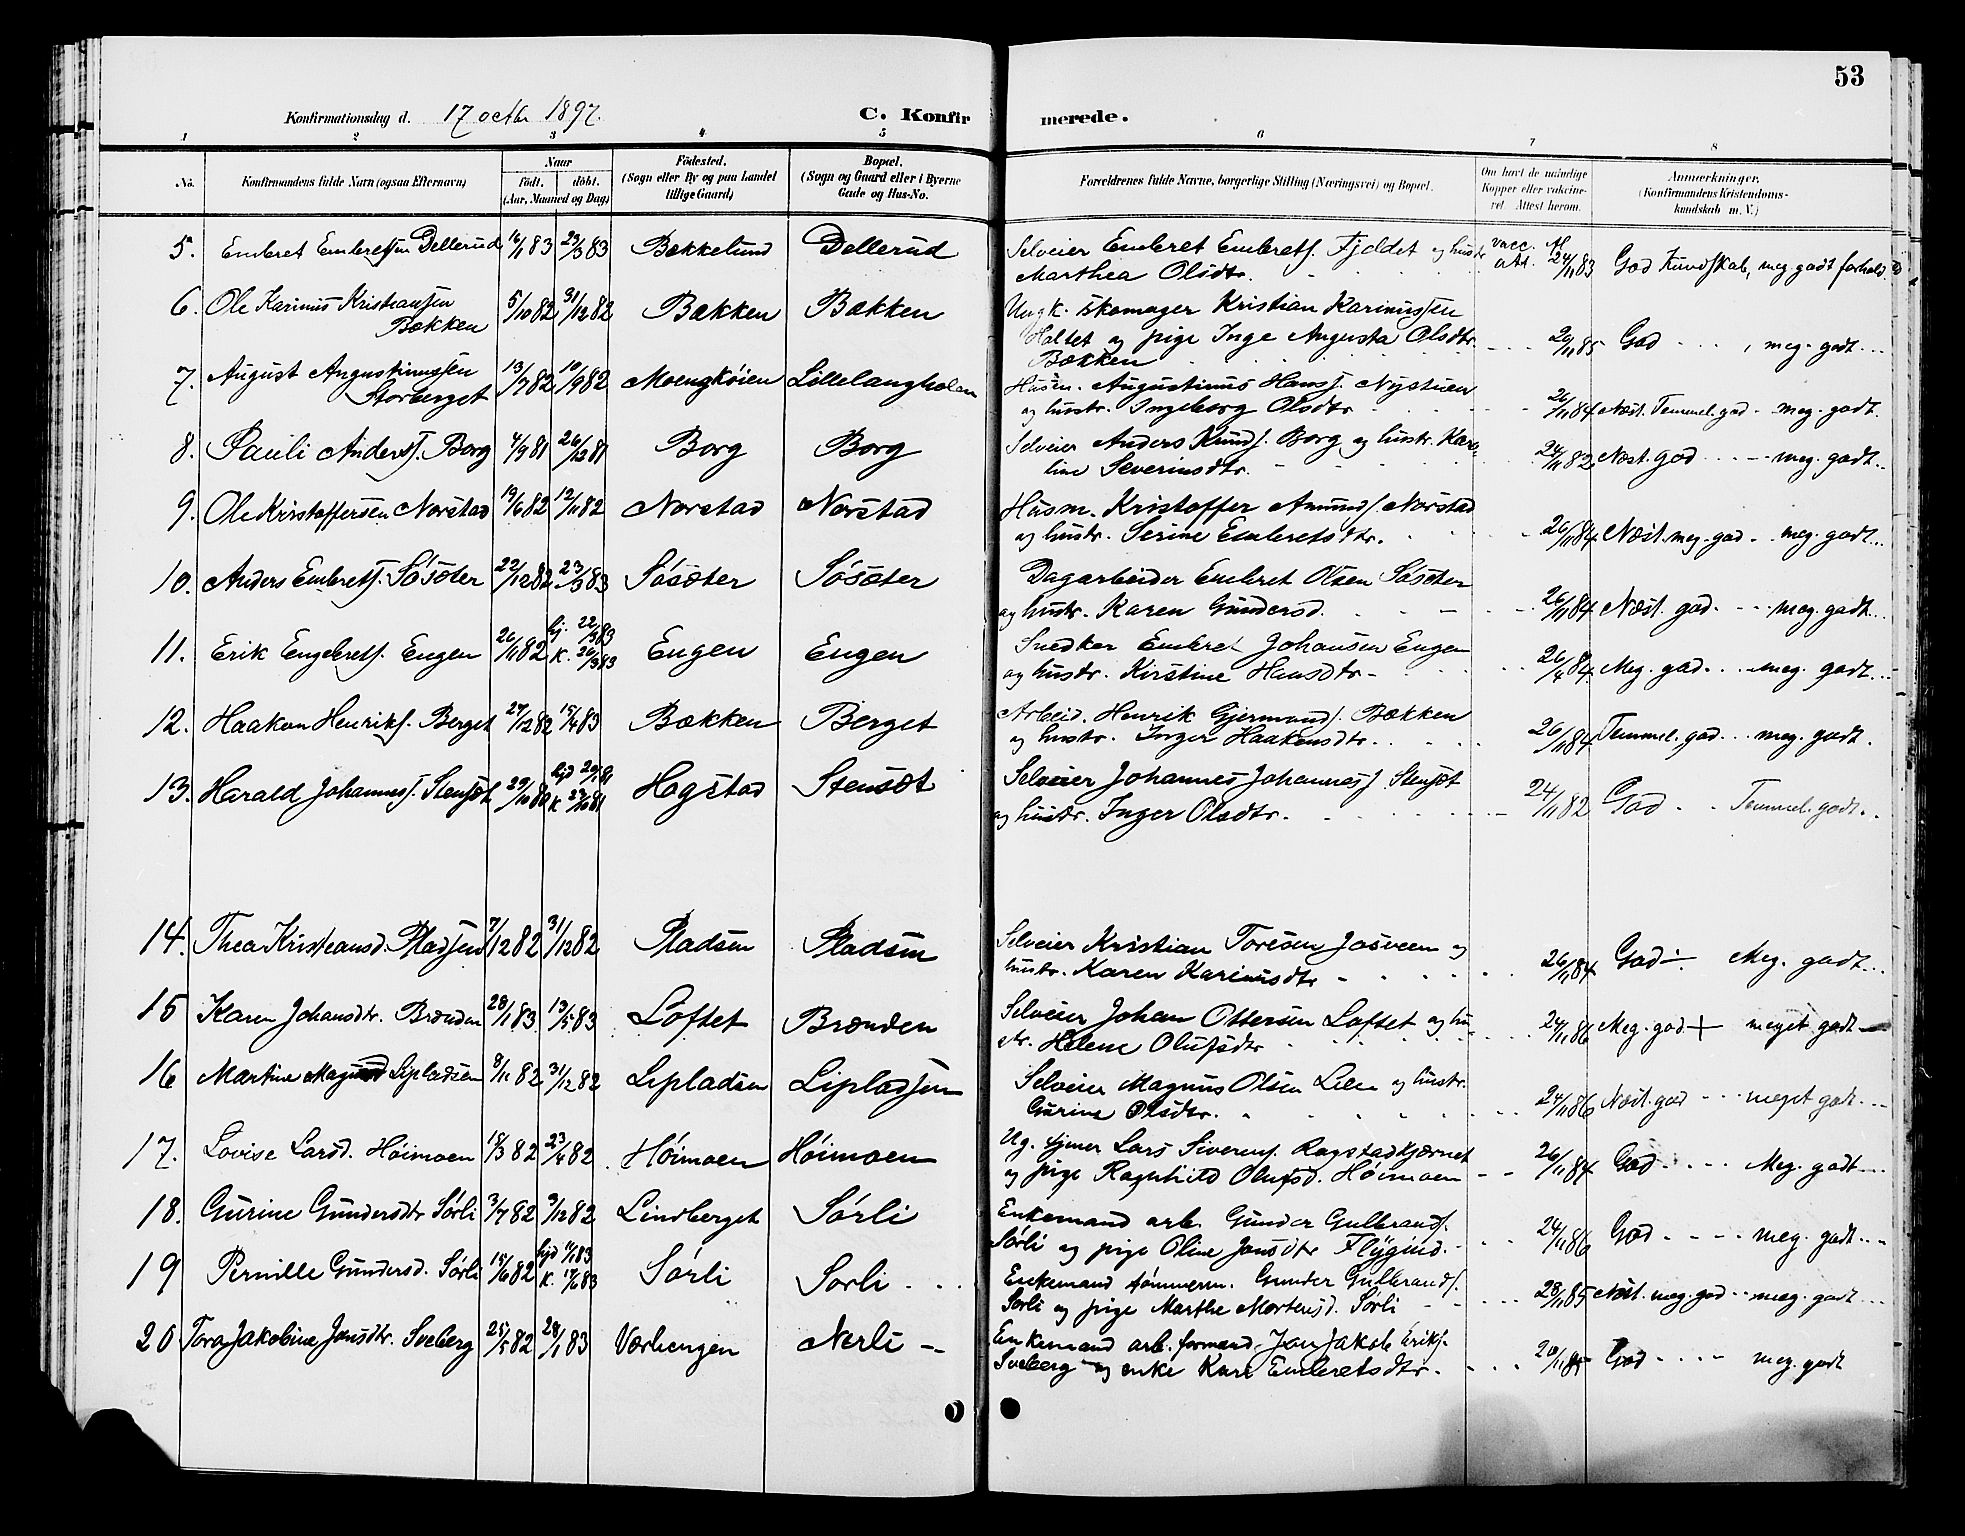 53
Konfirmationsdag d. 17 octbr 1897. C. Konfirmerede.
1 2 3 4 5 6 7 8
No. Konfirmandens fulde Navn (ogsaa Efternavn) Naar født, døbt. (Aar, Maaned og Dag) Fødested. (Sogn eller By og paa Landet tillige Gaard) Bopæl. (Sogn og Gaard eller i Byerne Gade og Hus-No. Forældrenes fulde Navne, borgerlige Stilling (Næringsvei) og Bopæl. Om havt de naturlige Kopper eller vakcineret. Attest herom. Anmærkninger, (Konfirmandens Kristendomskundskab m. V.)
5. Embret Embretsen Dellerud 16/1 83 23/3 83 Bækkelund Dellerud Selveier Embret Embrets. Fjeldet og hustr. Marthea Olsdtr. vacc. Att. 24/11 83 God Kundskab, meg. godt forhold
6. Ole Karinus Kristiansen Bækken 5/10 82 31/12 82 Bækken Bækken Ungk. skomager Kristian Karinussen Holtet og pige Inge Augusta Olsdtr. Bækken 26/11 85 God , meg. godt
7. August Augustinussen Storberget 13/7 82 10/9 82 Moengkøien Lillelangholen Husm. Augustinus Hans. Nystuen og hustr. Ingeborg Olsdtr 26/11 84 Næst. Temmel. god meg. godt.
8. Pauli Anders. Borg 4/9 81 26/12 81 Borg Borg Selveier Anders Knuds. Borg og hustr. Karoline Severinsdtr. 24/11 82 Næst. god meg. godt
9. Ole Kristoffersen Norstad 19/6 82 12/11 82 Norstad Norstad Husm. Kristoffer Amunds. Norstad og hustr. Serine Embretsdtr. 26/11 84 Næst. meg. god meg. godt
10. Anders Embrets. Søsæter 22/12 82 23/3 83 Søsæter Søsæter Dagarbeider Embret Olsen Søsæter og hustr. Karen Gundersd. 26/11 84 Næst. god. meg. godt
11. Erik Engebrets. Engen 26/11 82 hj. 22/1 83 K. 26/3 83 Engen Engen Snedker Embret Johansen Engen og hustr. Kirstine Hansdtr. 26/4 84 Meg. god meg. godt
12. Haakon Henriks. Berget 27/12 82 15/4 83 Bækken Berget Arbeid. Henrik Gjermunds. Bækken og hustr. Inger Haakensdtr. 26/11 84 Temmel. god meg. godt.
13. Harald Johannes. Stensæt 29/10 80 K. 23/10 81 Hogstad Stensæt Selveier Johannes Johannes. Stensæt og hustr. Inger Olsdtr. 24/11 82 God Temmel. godt.
14. Thea Kristiansd. Pladsen 7/12 82 31/12 82 Pladsen Pladsen Selveier Kristian Toresen Josveen og hustr. Karen Karinusdtr 26/11 84 God ÷ Meg. godt
15 Karen Johansdtr. Brænden 28/1 83 13/5 83 Loftet Brænden Selveier Johan Ottersen Loftet og hustr. Helene Olufsdtr 24/11 86 Meg. god + meget godt
16 Martine Lipladsen 9/11 82 31/12 82 Lipladsen Lipladsen Selveier Magnus Olsen Lien og hustr. Gurine Olsdtr. 24/11 86 Næst. god meget godt
17. Lovise Larsd. Høimoen 18/3 82 23/4 82 Høimoen Høimoen Ug. tjener Lars Siverins. Rogstadkjærnet og pige Ragnhild Olufsd. Høimoen 26/11 84 God Meg. godt
18. Gurine Gundersdtr Sørli 3/7 82 3/12 82 Lindberget Sørli Enkemand arb. Gunder Gulbrands. Sørli og pige Oline Jonsdtr Flygind. 24/11 86 God meg. godt
19 Pernille Gundersd. Sørli 15/6 82 K. 17/6 83 Sørli Sørli Enkemand tømmerm. Gunder Gulbrands. Sørli og pige Marthe Mortensd. Sørli 28/11 85 Næst. meg. god meg. godt
20 Tora Jakobine Jonsdtr. Sveberg 25/5 82 28/1 83 Værhengen Nerli Enkemand arb. formand Jon Jakob Eriks. Sveberg og enke Kari Embretsdtr. 20/11 85 God meg. godt